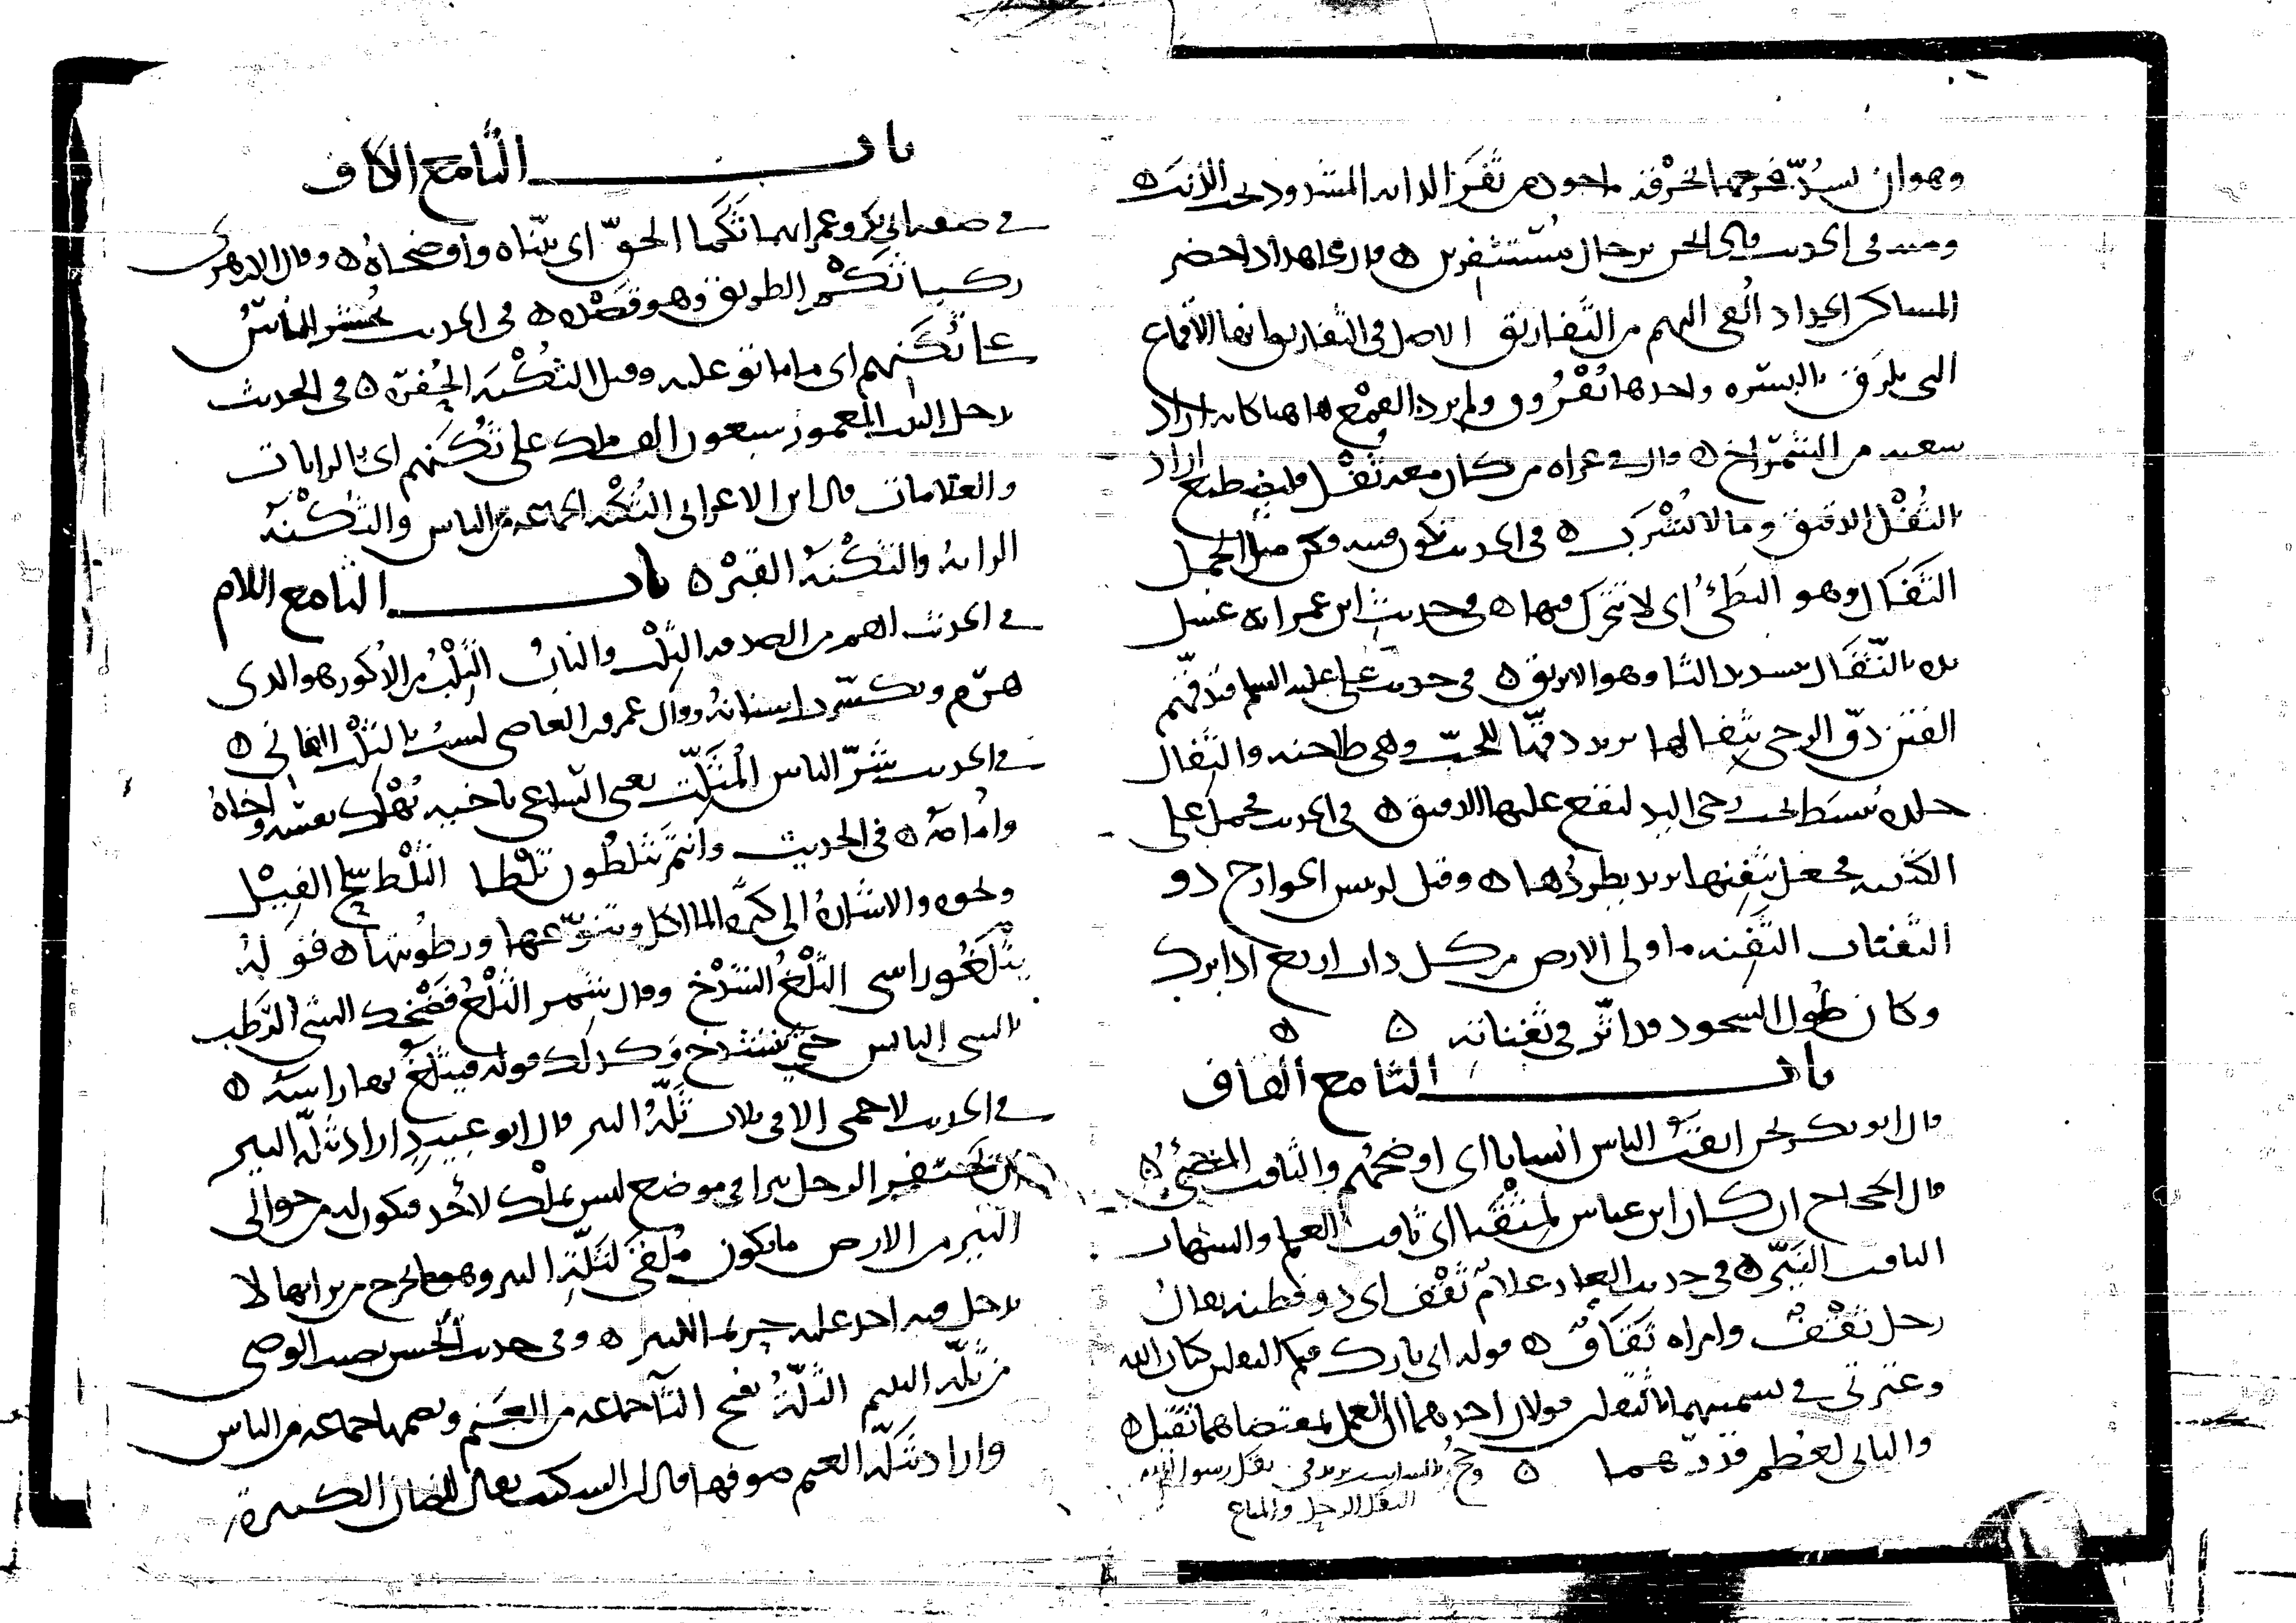 وهو ان تسدّ فرجها بخرقة ماخوذ من ثفر الدابه المشدود تحت الذنب ه
ومنه فى الحديث فاذا نحن برجال مستثفرين ه قال مجاهد اذا حضر
المساكين الجداد القى اليهم من الثفاريق الاصل فى الثفاريق انها الاقماع
التى تلزق بالبسره واحدها ثفروق ولم يرد القمع هاهنا كانه اراد
شعبه من الشمراخ ه قال فى غزاه من كان معه ثفل فليصطنع اراد
بالثفل الدقيق وما لا يشرب ه فى الحديث تكون فيه فكن مثل الجمل
الثفال وهو البطئ اى لا تتحرك فيها ه فى حديث ابن عمر انه غسل
يده بالثفال بتشديد الثا وهو الابريق ه فى حديث على عليه السلم تدقهم
الفتن دق الرحى بثفالها يريد دقها للحب وهى طاحنه والثفال
جلده تبسط تحت رحى اليد ليقع عليها الدقيق ه فى الحديث فحمل على
الكتيبه فجعل يثفنها يريد يطردها ه وقيل لرئيس الخوارج ذو
الثفنات الثفنه ما ولى الارض من كل ذات اربع اذا بركت
وكان طول السجود قد اثر فى ثفناته ه ه
باب الثا مع القاف
قال ابو بكر نحن اثقب الناس انسابا اى اوضحهم والثاقب المضئ ه
قال الحجاج ان كان ابن عباس لمثقبا اى ثاقب العلم والشهاب
الثاقب النير ه فى حديث الغار غلام ثقف اى ذو فطنه يقال
رجل ثقف وامراه ثقاف ه قوله انى تارك فيكم الثقلين كتاب الله
وعترتى فى تسميتهما بالثقلين قولان احدهما ان العمل بمقتضاهما ثقيل ه
والثانى لعظم قدرهما ه وحج بالسايب بن يزيد فى ثقل رسول الله
الثقل الرحل والمتاع
باب الثا مع الكاف
فى صفه ابى بكر وعمر انهما ثكما الحق اى بيناه واوضحاه ه وقال الازهرى
ركبا ثكم الطريق وهو قصده ه فى الحديث يحشر الناس
على ثكنهم اى ما ماتوا عليه وقيل الثكنه الحفره ه فى الحديث
يدخل البيت المعمور سبعون الف ملك على ثكنهم اى بالرايات
والعلامات قال ابن الاعرابى الثكنه الجماعه من الناس والثكنه
الرايه والثكنه القبر ه باب الثا مع اللام
فى الحديث لهم من الصدقه الثلب والناب الثلب من الذكور هو الذى
هرم وتكسرت اسنانه وقال عمرو بن العاصى لست بالثلب الفانى ه
فى الحديث شر الناس المثلث يعنى الساعى باخيه يهلك نفسه واخاه
وامامه ه فى الحديث وانتم تثلطون ثلطا الثلط سلح الفيل
ونحوه والاشاره الى كثره الماكل وتنوعها ورطوبتها ه قوله
يثلغوا راسى الثلغ الشدخ وقال شمر الثلغ فضخك الشئ الرطب
بالشئ اليابس حتى ينشدخ وكذلك قوله فيثلغ بها راسه ه
فى الحديث لا حمى الا فى ثلاث ثله البير قال ابو عبيد اراد بثله البير
ان يحتفر الرجل بيرا فى موضع ليس بملك لاحد فيكون له من حوالى
البير من الارض ما يكون ملقى لثلة البير وهو ما يخرج من ترابها لا
يدخل فيه احد عليه حريما للبير ه وفى حديث الحسن يصيب الوصى
من ثله اليتيم الثله بفتح الثآ جماعه من الغنم وبضمها جماعه من الناس
واراد بثله الغنم صوفها قال ابن السكيت يقال للضان الكثيره